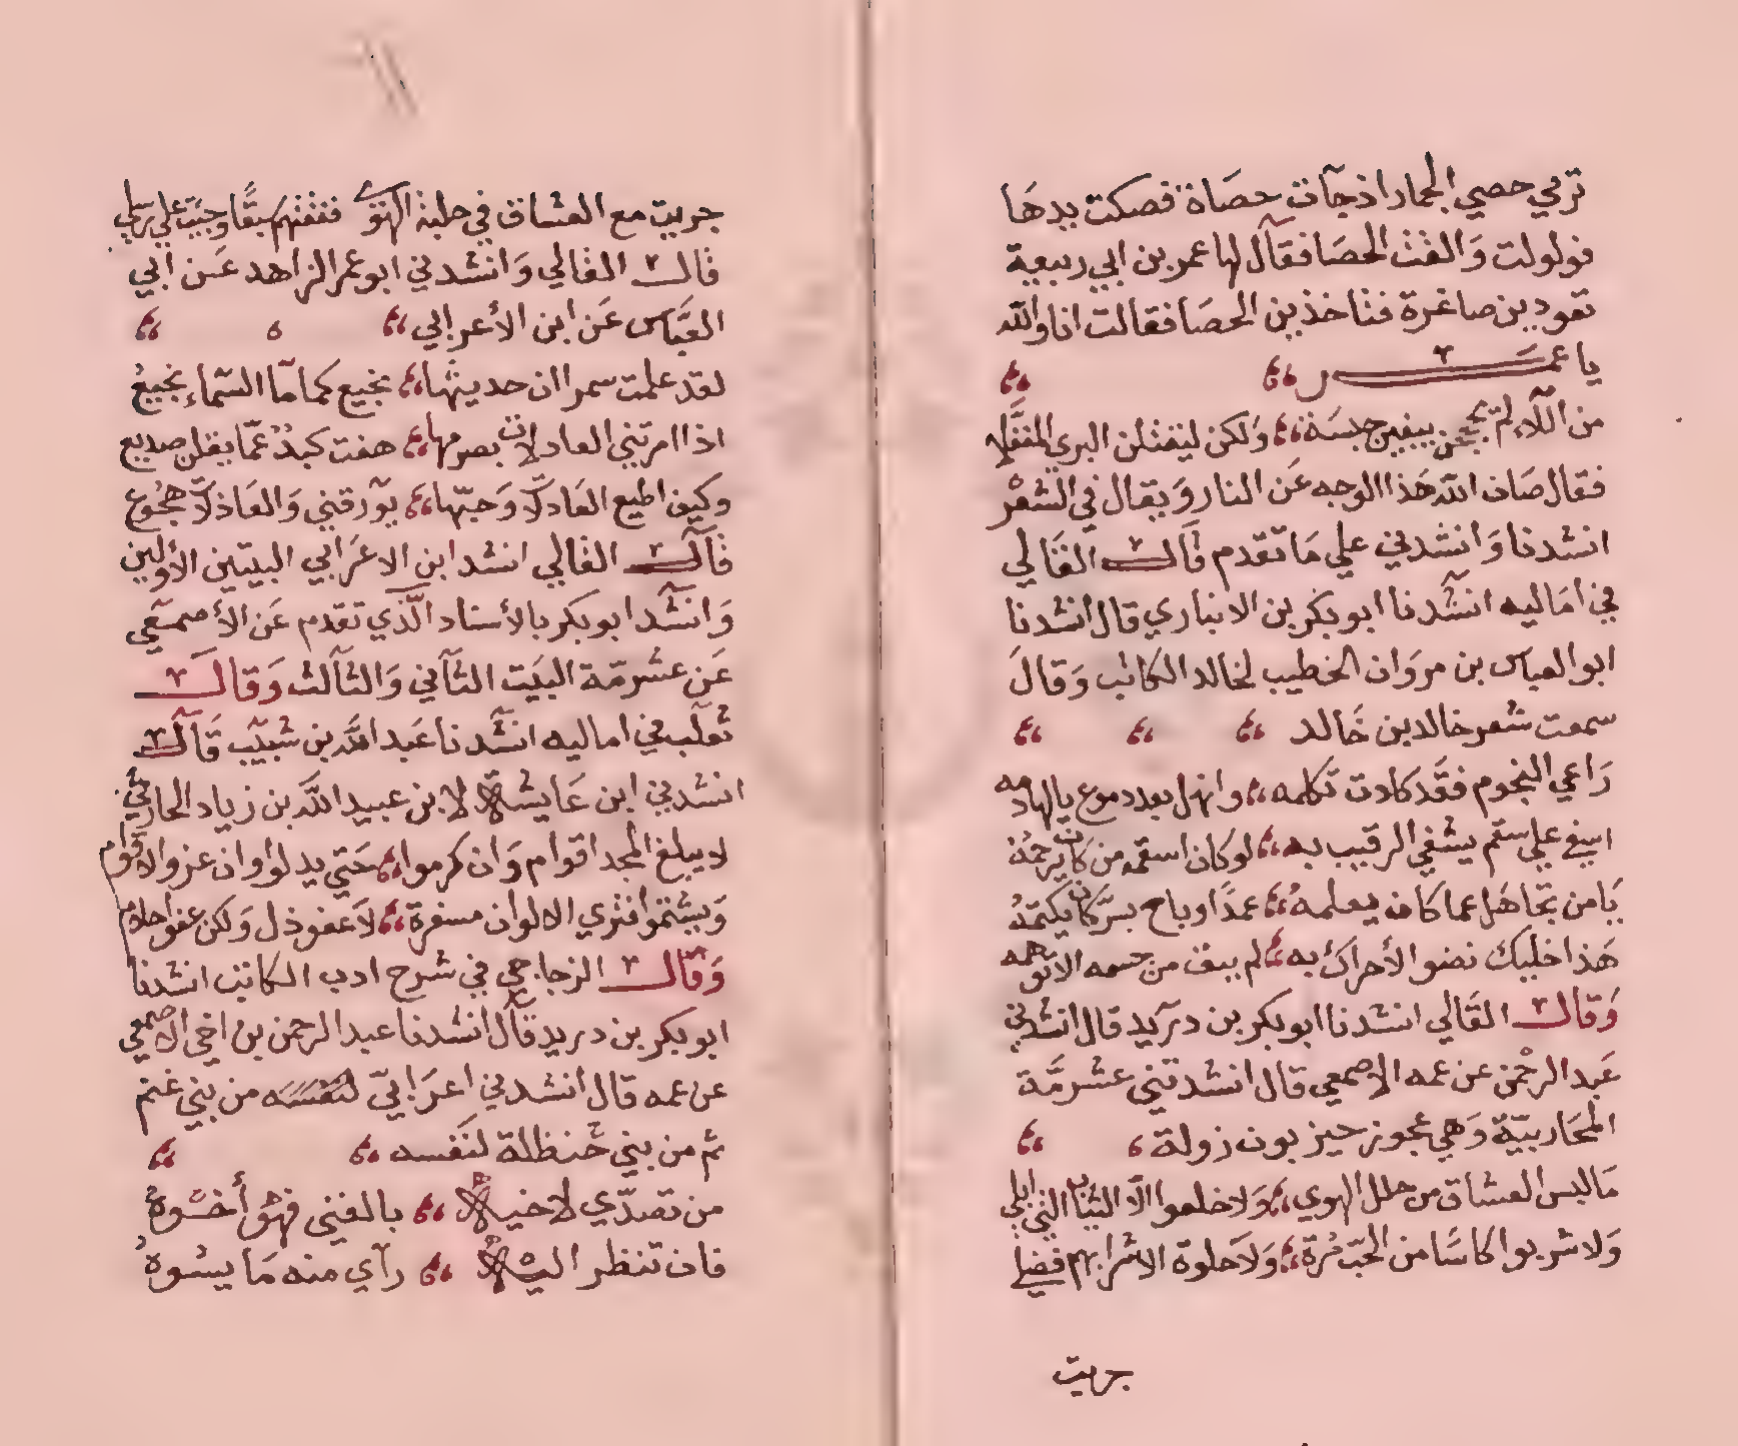 ترمي حصي الجمار اذ جآت حصاة فصكت يدها
فولولت وَالقت الحصَا فقآل لها عمر بن ابي ربيعة
تعودين صاغرة فتاخذين الحصَا فقالت انا والله
يا عمـــر
من اللآء لم يحججن يبغين حسَبة ولكن ليقتلن البري المغفَّلا
فقال صَان الله هَذا الوجه عَن النار وَيقال في الشعْر
انشدنا وَانشدني علي مَا تقدم قآل القَالي
في امَاليه انشدنا ابو بكر بن الانباري قال انشدنا
ابو العباس بن مروَان الخطيب لخالد الكاتب وَقالَ
سمعت شعر خالد بن خَالد
رَاعي النجوم فقَد كادت تكلمه وانهل بعد دموع يالها دمه
اشفي علي سقم يشفي الرقيب به لو كان اسقمه من كان يرحمهُ
يَا من تجَاهَل عما كان يعلمهُ عمدًا وباح بسرّ كان يكتمهُ
هَذا خليلك نضو الأحراك به لم يبق من جسمه الا توهمه
وَقال القَالي انشدنا ابو بكر بن دريد قال انشدني
عَبد الرحْمن عن عمه الاصمعي قال انشدتني عشرمَّة
المحَاربيّة وَهي عجوز حيزبون زولة
مَا لبس العشاق من حلل الهوي وَلا خلعوا الّا الثياب التي ابلي
وَلا شربوا كاسَا من الحبّ مُرة وَلاَ حلوة الا شرابهم فضلي
جريت
جريت مع العشاق في حلبة الهوَي ففقتهم سبقًا وجيت علي رسلي
قال القالي وَانشدني ابو عمر الزاهد عَن ابي
العبَّاس عَن ابن الأعرابي
لقد علمت سمرا ان حديثها نجيع كما مَا السّماء نجيعُ
اذا امرتني العاذلات بصرمها هفت كبدٌ عمّا يقلن صديع
وكيف اطيع العَاذلاَّ وَحبّها يوَرقني وَالعَاذلاَّ هجُوع
قآل القالي انشد ابن الاعرَابي البيتين الأولين
وَانشَد ابو بكر بالأسناد الَّذي تقدم عَن الأصمعي
عَن عشرمّة البيَت الثآني وَالثآلث وَقالَ
ثعلب في اماليه انشَدنا عَبد اللَّه بن شبيب قَآل
انشدني ابن عَايشة لابن عبيد اللَّه بن زياد الحارثي
لا يبلغ المجد اقوام وَان كرموا حَتي يذلوا وان عزوا لاقوام
وَيشتموا فتري الالوان مسفرة لاَ عفو ذل وَلكن عفو احلام
وَقال الزجاجي في شرح ادب الكاتب انشدنا
ابو بكر بن دريد قآل انشدنا عبد الرحمن بن اخي الاصمعي
عن عمه قال انشدني اعرَابيّ لنفسه من بني غنم
ثم من بني حَنظلة لنَفسه
من تصدّي لاخيه بالغني فهوَ أَخوهُ
فان تنظر اليه رآي منه مَا يسوهُ